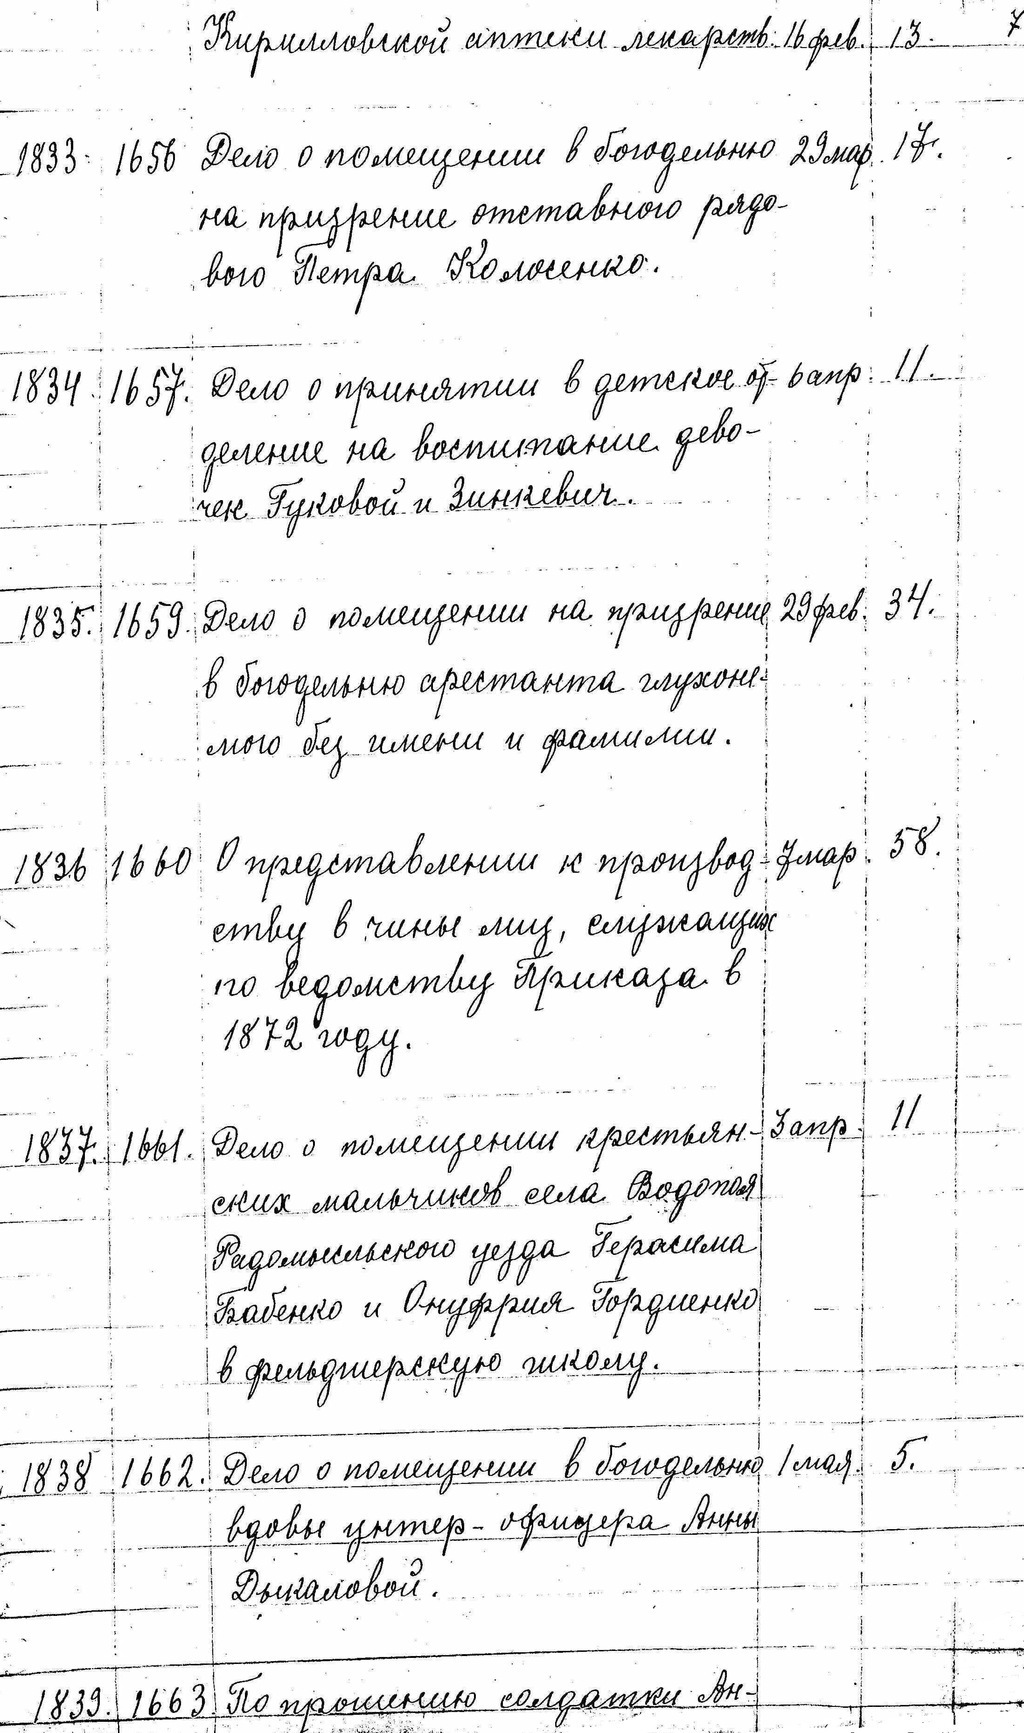 Кирилловской аптеки лекарств. 16 фев. 13. 7
1833. 1656 Дело о помещении в богодельню 29 мар. 17.
на призрение отставного рядо-
вого Петра Колосенко.
1834. 1657. Дело о принятии в детское от- 6 апр. 11.
деление на воспитание дево-
чек Гуковой и Зинкевич.
1835. 1659. Дело о помещении на призрение 29 фев. 34.
в богодельню арестанта глухоне-
мого без имени и фамилии.
1836 1660 О представлении к производ- 7 мар. 58.
ству в чины лиц, служащих
по ведомству Приказа в
1872 году.
1837. 1661. Дело о помещении крестьян- 3 апр. 11
ских мальчиков села Водопоя
Радомысльского уезда Герасима
Бабенко и Онуфрия Гордиенко
в фельдшерскую школу.
1838 1662. Дело о помещении в богодельню 1 мая. 5.
вдовы унтер-офицера Анны
Дыкаловой.
1839. 1663 По прошению солдатки Ан-